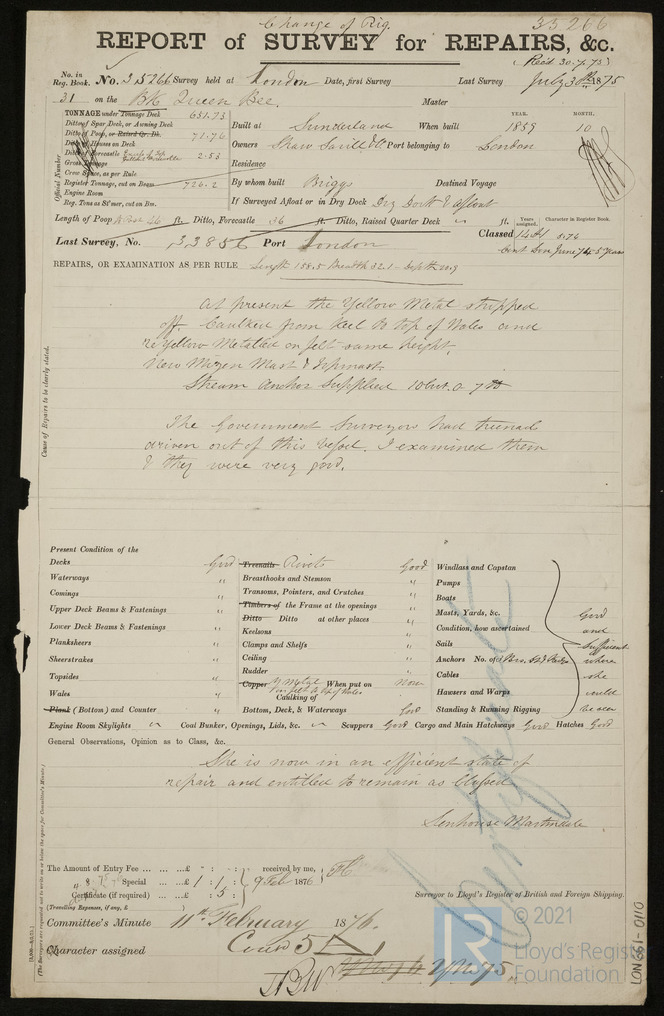 Change of Rig.
33266
REPORT of SURVEY for REPAIRS, &c.
Rec'd 30.7.75
No. in Reg. Book. No. 33266 Survey held at London Date, first Survey Last Survey July 30th 1875
31 on the Bk Queen Bee. Master
TONNAGE under Tonnage Deck 651.73
Ditto of Spar Deck, or Awning Deck
Ditto of Poop, or Raised Qr. Dk. 71.76
Ditto of Houses on Deck
Ditto of Forecastle 2.53
Gross Tonnage
Crew Space, as per Rule
Register Tonnage, cut on Beam 726.2
Engine Room
Reg. Tons as St'mer, cut on Bm.
Official Number
YEAR. MONTH.
Built at Sunderland When built 1859 10
Owners Shaw Savill & Co. Port belonging to London
Residence
By whom built Briggs Destined Voyage
If Surveyed Afloat or in Dry Dock Dry Dock & afloat
Length of Poop 46 ft. Ditto, Forecastle 36 ft. Ditto, Raised Quarter Deck ft.
Years assigned. Character in Register Book.
Last Survey, No. 33856 Port London
Classed 14 A1 5.76
Cont Son June 74 5 Years
REPAIRS, OR EXAMINATION AS PER RULE Length 158.5 Breadth 32.1 Depth 20.9
Cause of Repairs to be clearly stated.
At present the Yellow Metal stripped
off. Caulked from Keel to top of Wales and
re Yellow Metalled on felt same height.
New Mizen Mast & Topmast.
Stream Anchor Supplied 10 Cwt. 0. 7 lb
The Government Surveyor had treenails
driven out of this Vessel. I examined them
& they were very good.
Present Condition of the
Decks Good
Waterways "
Comings "
Upper Deck Beams & Fastenings "
Lower Deck Beams & Fastenings "
Planksheers "
Sheerstrakes "
Topsides "
Wales "
Plank (Bottom) and Counter "
Treenails Rivets Good
Breasthooks and Stemson "
Transoms, Pointers, and Crutches "
Timbers of the Frame at the openings "
Ditto Ditto at other places "
Keelsons "
Clamps and Shelfs "
Ceiling "
Rudder "
Copper Y Metal When put on Now
Caulking of
Bottom, Deck, & Waterways Good
Windlass and Capstan
Pumps
Boats
Masts, Yards, &c.
Condition, how ascertained
Sails
Anchors No. of
Cables
Hawsers and Warps
Standing & Running Rigging
Good
and
Sufficient
where
she
could
be seen
Engine Room Skylights Coal Bunker, Openings, Lids, &c. Scuppers Good Cargo and Main Hatchways Good Hatches Good
General Observations, Opinion as to Class, &c.
She is now in an efficient state of
repair and entitled to remain as Classed
Senhouse Martindale
The Amount of Entry Fee ... ... ...£ : : received by me,
Special ... ...£ 1 : 1 : 9 Feb 1876
Certificate (if required) ... : 5 :
(Travelling Expenses, if any, £ )
Surveyor to Lloyd's Register of British and Foreign Shipping.
Committee's Minute 11th February 1876.
Character assigned Cont'd 5
(The Surveyors are requested not to write on or below the space for Committee's Minute.)
© 2021
Lloyd's Register
Foundation
LR
LON 661-0110